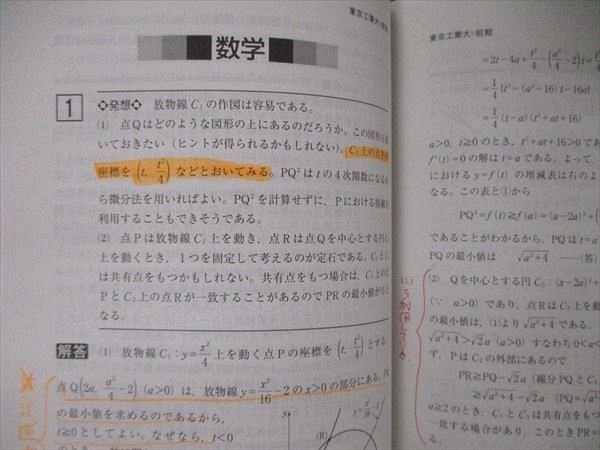 東京工業大-前期
数学
1
❖発想❖ 放物線C₁の作図は容易である。
(1) 点Qはどのような図形の上にあるのだろうか。この図形も
いておきたい(ヒントが得られるかもしれない)。C₁上の点
座標を(t, t²/4)などとおいてみる。PQ²はtの4次関数になるか
ら微分法を用いればよい。PQ²を計算せずに、Pにおける
利用することもできそうである。
(2) 点Pは放物線C₁上を動き、点Rは点Qを中心とする円C
上を動くとき、1つを固定して考えるのが定石である。C₁と
は共有点をもつかもしれない。共有点をもつ場合は、C₁上の
PとC₂上の点Rが一致することがあるのでPRの最小値が0と
なる。
解答 (1) 放物線C₁:y=x²/4 上を動く点Pの座標を(t, t²/4)とする。
点Q(2a, a²/4-2) (a>0)は、放物線y=x²/16-2のx>0の部分にある。
の最小値を求めるのであるから、
t≧0としてよい。なぜなら、t<0
y
(R)
東京工業大-前期
=2t-4a+t³/4-(a²/4-2)t=
=1/4{t³-(a²-16)t-16a}
=1/4(t-a)(t²+at+16)
a>0, t≧0のとき、t²+at+16>0であ
f'(t)=0の解はt=aである。よって、
におけるy=f(t)の増減表は右のよ
なる。この表と①から
PQ²=f(t)≧f(a)=(a-2a)²+(
であることがわかるから、PQはt=a
PQの最小値は √(a²+4) ……(答)
(2) Qを中心とする円C₂:(x-2a)²+
(∵ a>0)であり、点RはC₂上を動
の最小値は、(1)より√(a²+4)である。
√(a²+4)>√2a (a>0) すなわち0<a<
ず、PはC₂の外部にあるので
PR≧PQ-√2a (線分PQとC₂
≧√(a²+4)-√2a (PQ=√(a²
a≧2のとき、C₁とC₂は共有点をもつ
一致する場合があり、このときPR